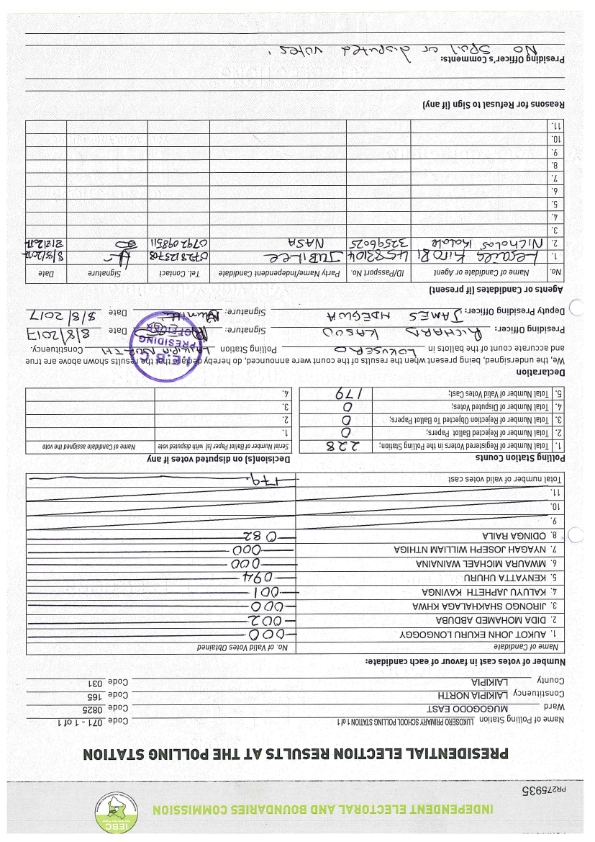 INDEPENDENT ELECTORAL AND BOUNDARIES COMMISSION
IEBC
PR275935
PRESIDENTIAL ELECTION RESULTS AT THE POLLING STATION
Name of Polling Station LUKOSERO PRIMARY SCHOOL POLLING STATION 1 of 1 Code 071 - 1 of 1
Ward MUGOGODO EAST Code 0825
Constituency LAIKIPIA NORTH Code 165
County LAIKIPIA Code 031
Number of votes cast in favour of each candidate:
Name of Candidate No. of Valid Votes Obtained
1. AUKOT JOHN EKURU LONGOGGY 000
2. DIDA MOHAMED ABDUBA 002
3. JIRONGO SHAKHALAGA KHWA 000
4. KALUYU JAPHETH KAVINGA 001
5. KENYATTA UHURU 094
6. MWAURA MICHAEL WAINAINA 000
7. NYAGAH JOSEPH WILLIAM NTHIGA 000
8. ODINGA RAILA 082
9.
10.
11.
Total number of valid votes cast 179
Polling Station Counts
1. Total Number of Registered Voters in the Polling Station; 228
2. Total Number of Rejected Ballot Papers; 0
3. Total Number of Rejection Objected To Ballot Papers; 0
4. Total Number of Disputed Votes; 0
5. Total Number of Valid Votes Cast; 179
Decision(s) on disputed votes if any
Serial Number of Ballot Paper (s) with disputed vote Name of Candidate assigned the vote
1.
2.
3.
4.
Declaration
We, the undersigned, being present when the results of the count were announced, do hereby declare that the results shown above are true
and accurate count of the ballots in LOKUSERO Polling Station LAIKIPIA NORTH Constituency.
Presiding Officer: RICHARD KASOO Signature: Date 8/8/2017
Deputy Presiding Officer: JAMES NDEGWA Signature: Date 8/8/2017
I.E.B.C. PRESIDING OFFICER
Agents or Candidates (if present)
No. Name of Candidate or Agent ID/Passport No. Party Name/Independent Candidate Tel. Contact Signature Date
1. JUBILEE 8/8/2017
2. Nicholas 32596025 NASA 0792098511
3.
4.
5.
6.
7.
8.
9.
10.
11.
Reasons for Refusal to Sign (if any)
Presiding Officer's Comments:
No Spoil or disputed votes.